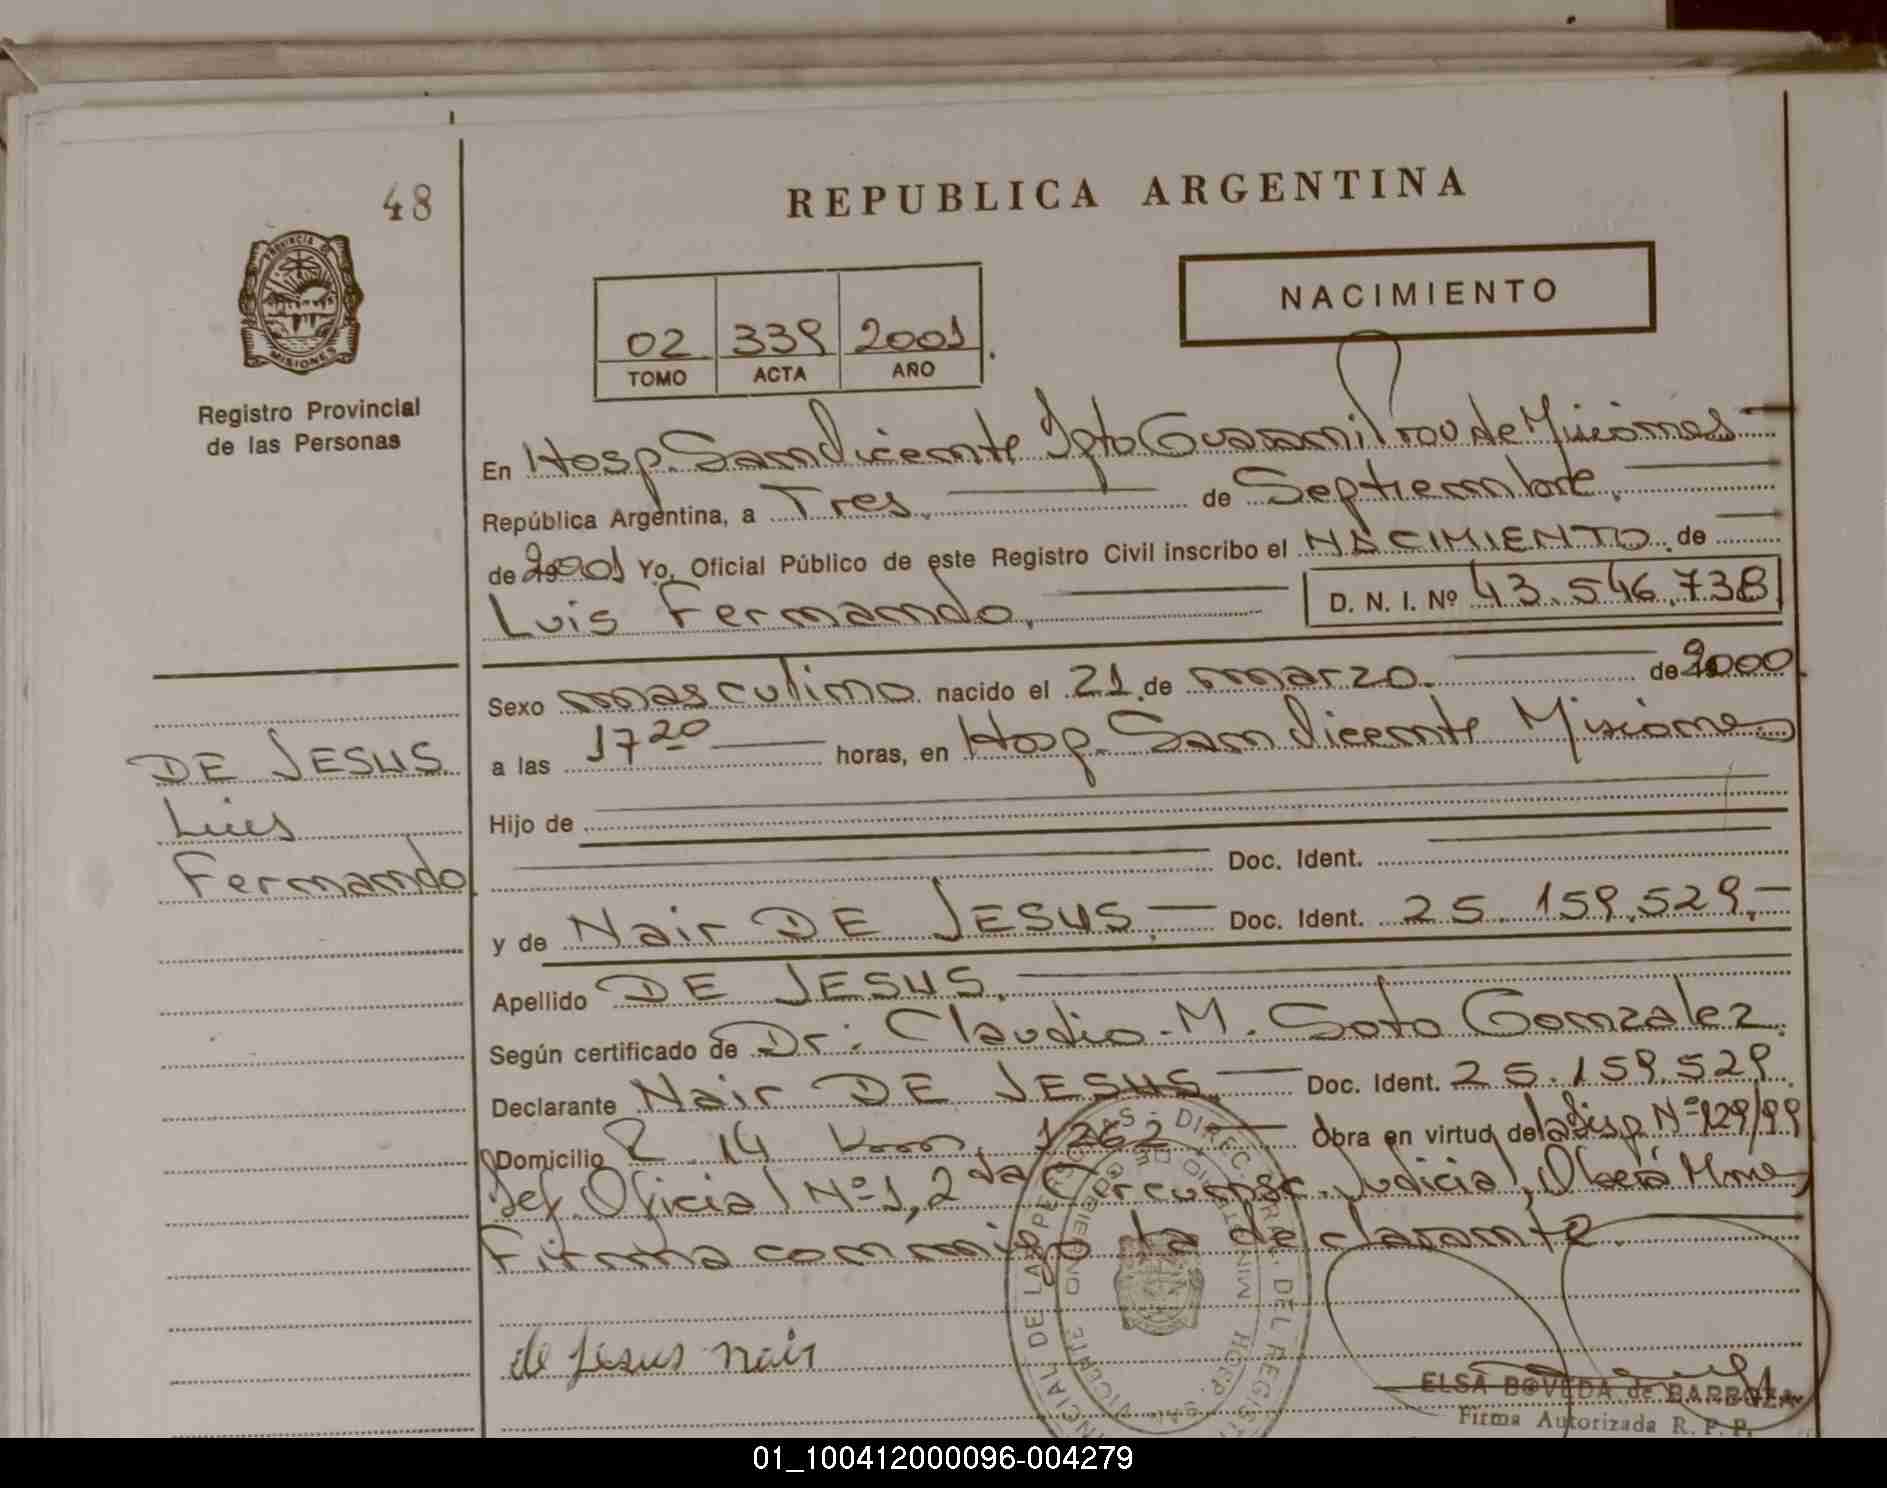 48
REPUBLICA ARGENTINA
PROVINCIA DE
MISIONES
Registro Provincial
de las Personas
NACIMIENTO
02 339 2001
TOMO ACTA AÑO
En Hosp. San Vicente Dpto Guarani Prov de Misiones
República Argentina, a Tres, de Septiembre,
de 2001 Yo, Oficial Público de este Registro Civil inscribo el NACIMIENTO de
Luis Fernando, D. N. I. Nº 43.546.738
Sexo masculino nacido el 21 de marzo. de 2000
a las 17 20 horas, en Hosp. San Vicente Misiones
Hijo de
Doc. Ident.
y de Nair DE JESUS. Doc. Ident. 25.159.529.
Apellido DE JESUS.
Según certificado de Dr: Claudio M. Soto Gonzalez.
Declarante Nair DE JESUS. Doc. Ident. 25.159.529.
Domicilio R 14 km 1262 Obra en virtud de la Disp Nº 129/99
Def. Oficial Nº 1, 2da Circunsc. Judicial, Oberá Mnes
Firma conmigo la declarante.
DE JESUS
Luis
Fernando
de Jesus nair
ELSA BOVEDA de BARBOZA
Firma Autorizada R. P. P.
01_100412000096-004279